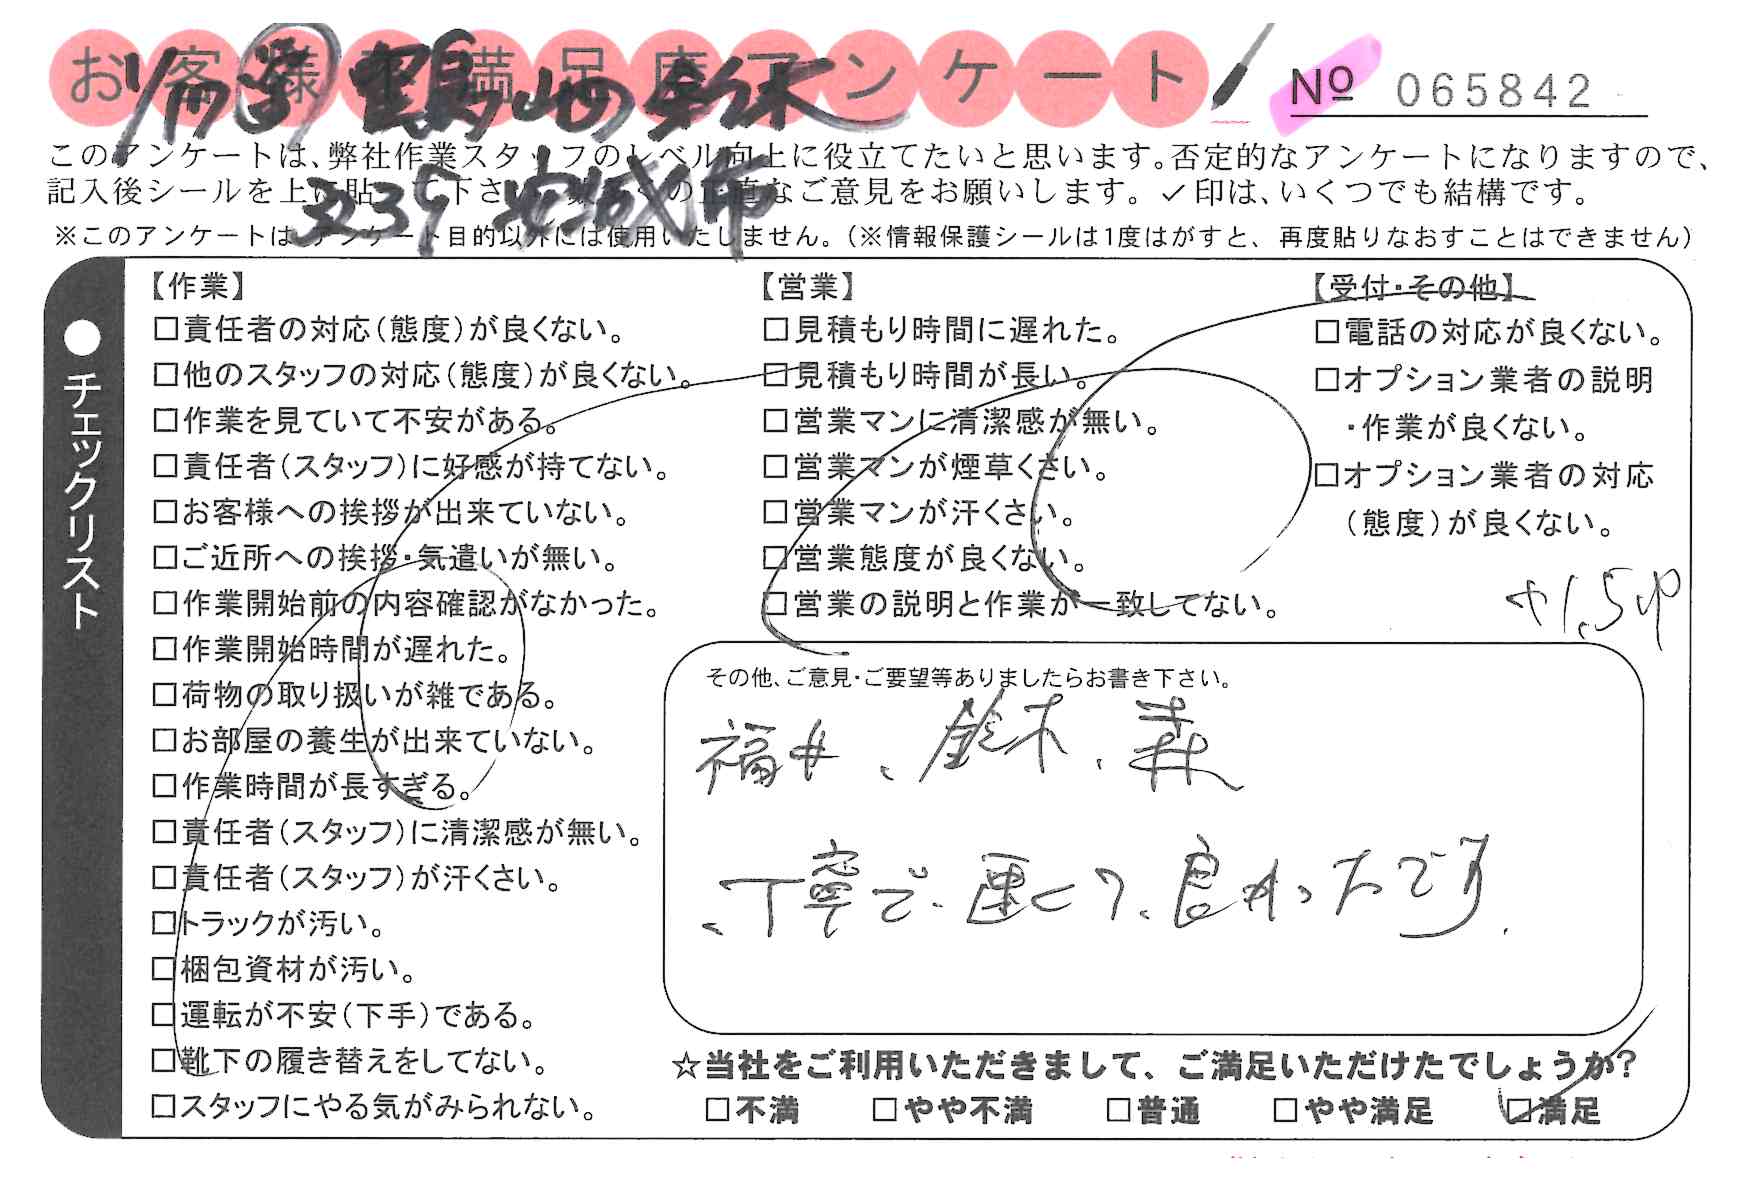 お客様不満足度アンケート
No 065842
このアンケートは、弊社作業スタッフのレベル向上に役立てたいと思います。否定的なアンケートになりますので、
記入後シールを上に貼って下さい。数多くの正直なご意見をお願いします。✓印は、いくつでも結構です。
3239 安城市
※このアンケートは、アンケート目的以外には使用いたしません。(※情報保護シールは1度はがすと、再度貼りなおすことはできません)
●チェックリスト
【作業】
□責任者の対応(態度)が良くない。
□他のスタッフの対応(態度)が良くない。
□作業を見ていて不安がある。
□責任者(スタッフ)に好感が持てない。
□お客様への挨拶が出来ていない。
□ご近所への挨拶・気遣いが無い。
□作業開始前の内容確認がなかった。
□作業開始時間が遅れた。
□荷物の取り扱いが雑である。
□お部屋の養生が出来ていない。
□作業時間が長すぎる。
□責任者(スタッフ)に清潔感が無い。
□責任者(スタッフ)が汗くさい。
□トラックが汚い。
□梱包資材が汚い。
□運転が不安(下手)である。
□靴下の履き替えをしてない。
□スタッフにやる気がみられない。
【営業】
□見積もり時間に遅れた。
□見積もり時間が長い。
□営業マンに清潔感が無い。
□営業マンが煙草くさい。
□営業マンが汗くさい。
□営業態度が良くない。
□営業の説明と作業が一致してない。
【受付・その他】
□電話の対応が良くない。
□オプション業者の説明
・作業が良くない。
□オプション業者の対応
(態度)が良くない。
その他、ご意見・ご要望等ありましたらお書き下さい。
福井、鈴木、森
、丁寧で、運くて、良かったです.
☆当社をご利用いただきまして、ご満足いただけたでしょうか?
□不満 □やや不満 □普通 □やや満足 □満足